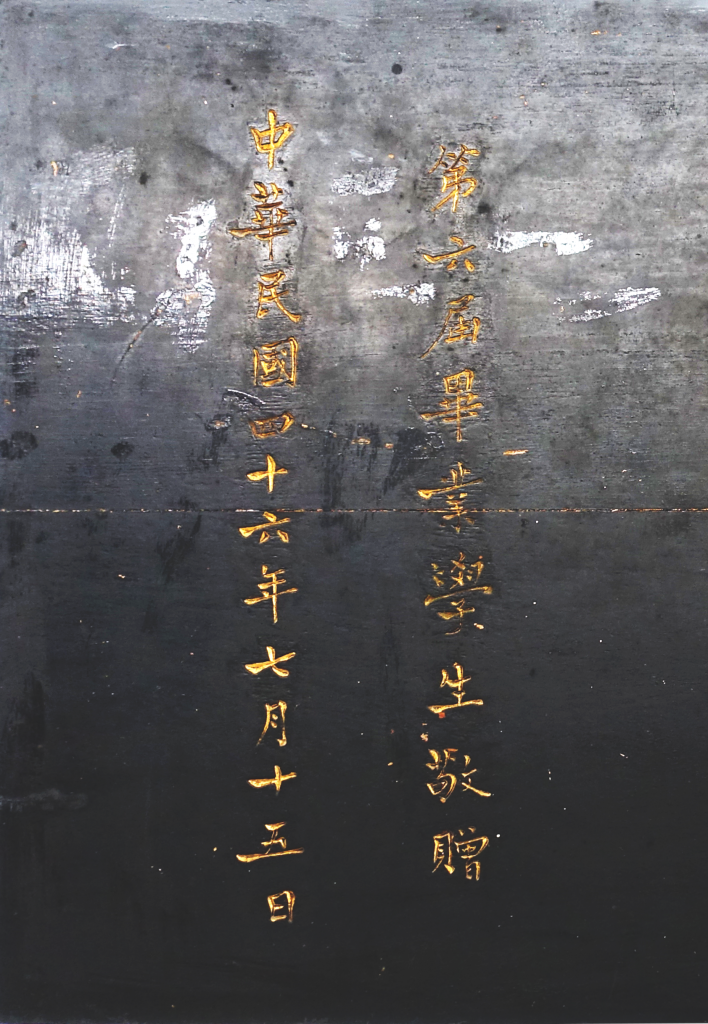 第六屆畢業學生敬贈
中華民國四十六年七月十五日